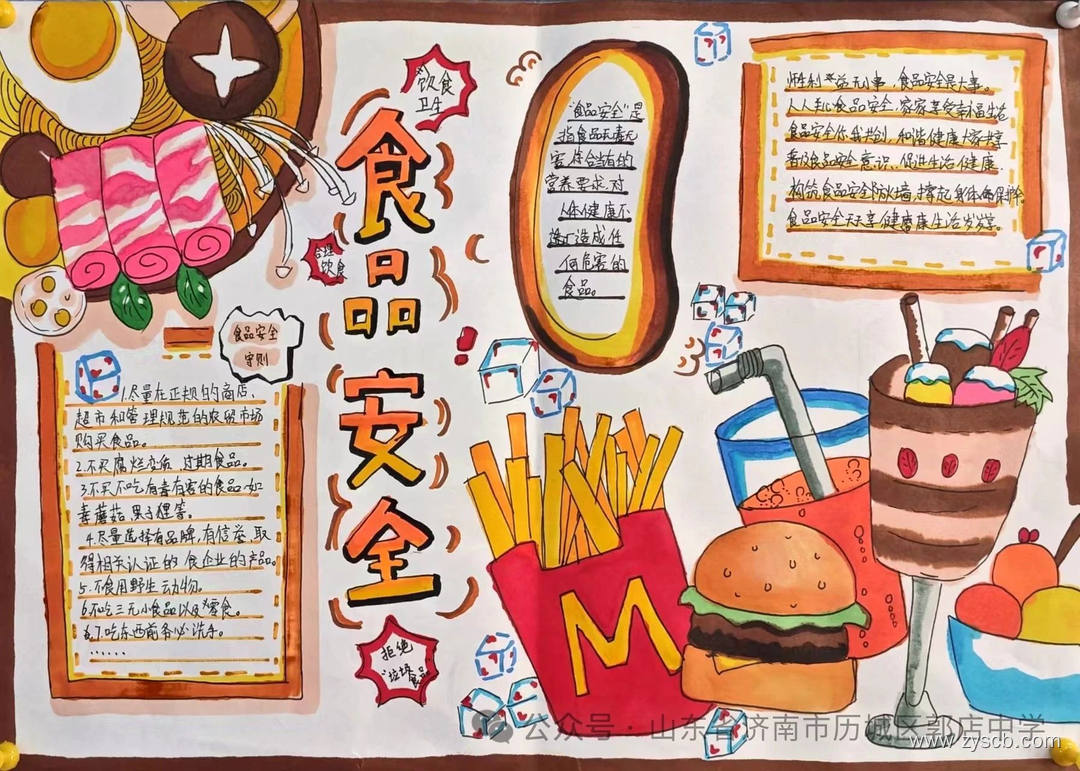 饮食
卫生
食
品
安
全
合理
饮食
拒绝
垃圾
食品
"食品安全"是
指食品无毒无
害,符合当有的
营养要求,对
人体健康不
造成任
何危害的
食品。
益无小事,食品安全是大事。
食品安全,家家享受幸福生活
食品安全你我共创,和谐健康大家共享
食品安全意识,促进生活健康.
构筑食品安全防火墙,撑起身体保护伞.
食品安全天天享,健康生活
食品安全
守则
1.尽量在正规的商店、
超市和管理规范的农贸市场
购买食品。
2.不买腐烂变质、过期食品。
3.不买不吃有毒有害的食品.如
毒蘑菇、果子狸等。
4.尽量选择有品牌,有信誉、取
得相关认证的食企业的产品。
5.不食用野生动物。
6.不吃三无小食品以及零食。
7.吃东西前务必洗手。
……
M
公众号·山东省济南市历城区郭店中学
www.zyscb.com